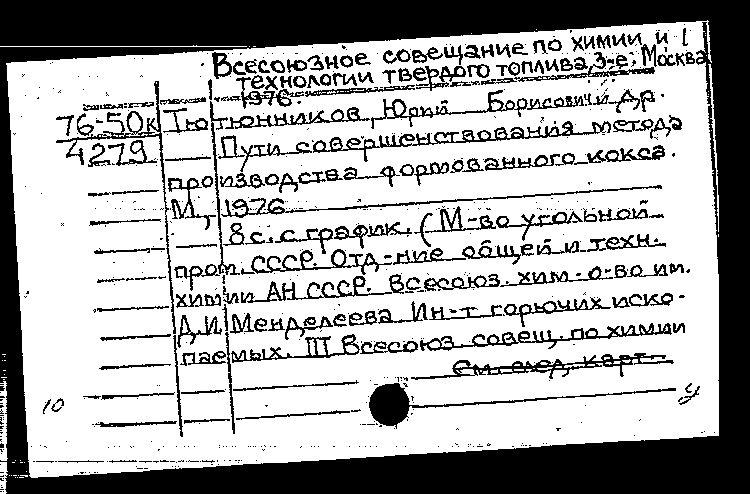 Всесоюзное совещание по химии и
технологии твердого топлива, 3-е. Москва
1976.
76-50к Тютюнников, Юрий Борисович и др.
4279 Пути совершенствования метода
производства формованного кокса.
М., 1976
8 с. с график. (М-во угольной
пром. СССР. Отд-ние общей и техн.
химии АН СССР. Всесоюз. хим. о-во им.
Д.И. Менделеева. Ин-т горючих иско-
паемых. III Всесоюз. совещ. по химии
См. след. карт.
10